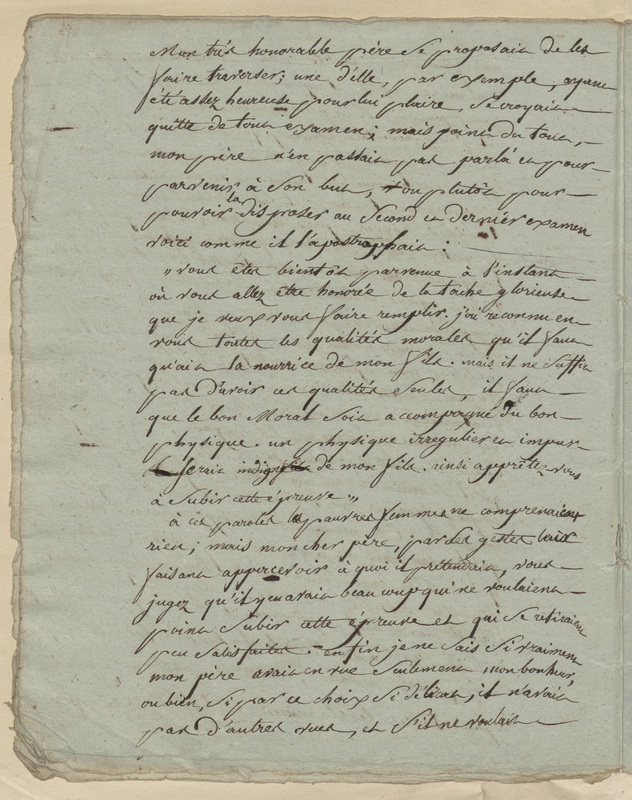 Mon très honorable père se proposait de les
faire traverser; une d'elle, par exemple, ayant
été assez heureuse pour lui plaire, se croyait
quitte de tout examen; mais point du tout,
mon père n'en passait pas par là et pour
parvenir à son but, ou plutôt pour
pouvoir la disposer au second et dernier examen
voici comme il l'apostrophait:
"vous êtes bientôt parvenue à l'instant
où vous allez être honorée de la tache glorieuse
que je veux vous faire remplir. j'ai reconnu en
vous toutes les qualités morales qu'il faut
qu'ait la nourrice de mon fils. mais il ne suffit
pas d'avoir ces qualités seules, il faut
que le bon Moral soit accompagné du bon
physique. un physique irrégulier et impur
serait indigne de mon fils. ainsi apprêtez-vous
à subir cette épreuve"
à ces paroles les pauvres femmes ne comprenaient
rien; mais mon cher père, par des gestes leur
faisant appercevoir à quoi il prétendait, vous
jugez qu'il y en avait beaucoup qui ne voulaient
point subir cette épreuve et qui se retiraient
peu satisfaites; enfin je ne sais si vraiment
mon père avait en vue seulement mon bonheur,
ou bien, si par ce choix si délicat, il n'avait
pas d'autres vues, et s'il ne voulait